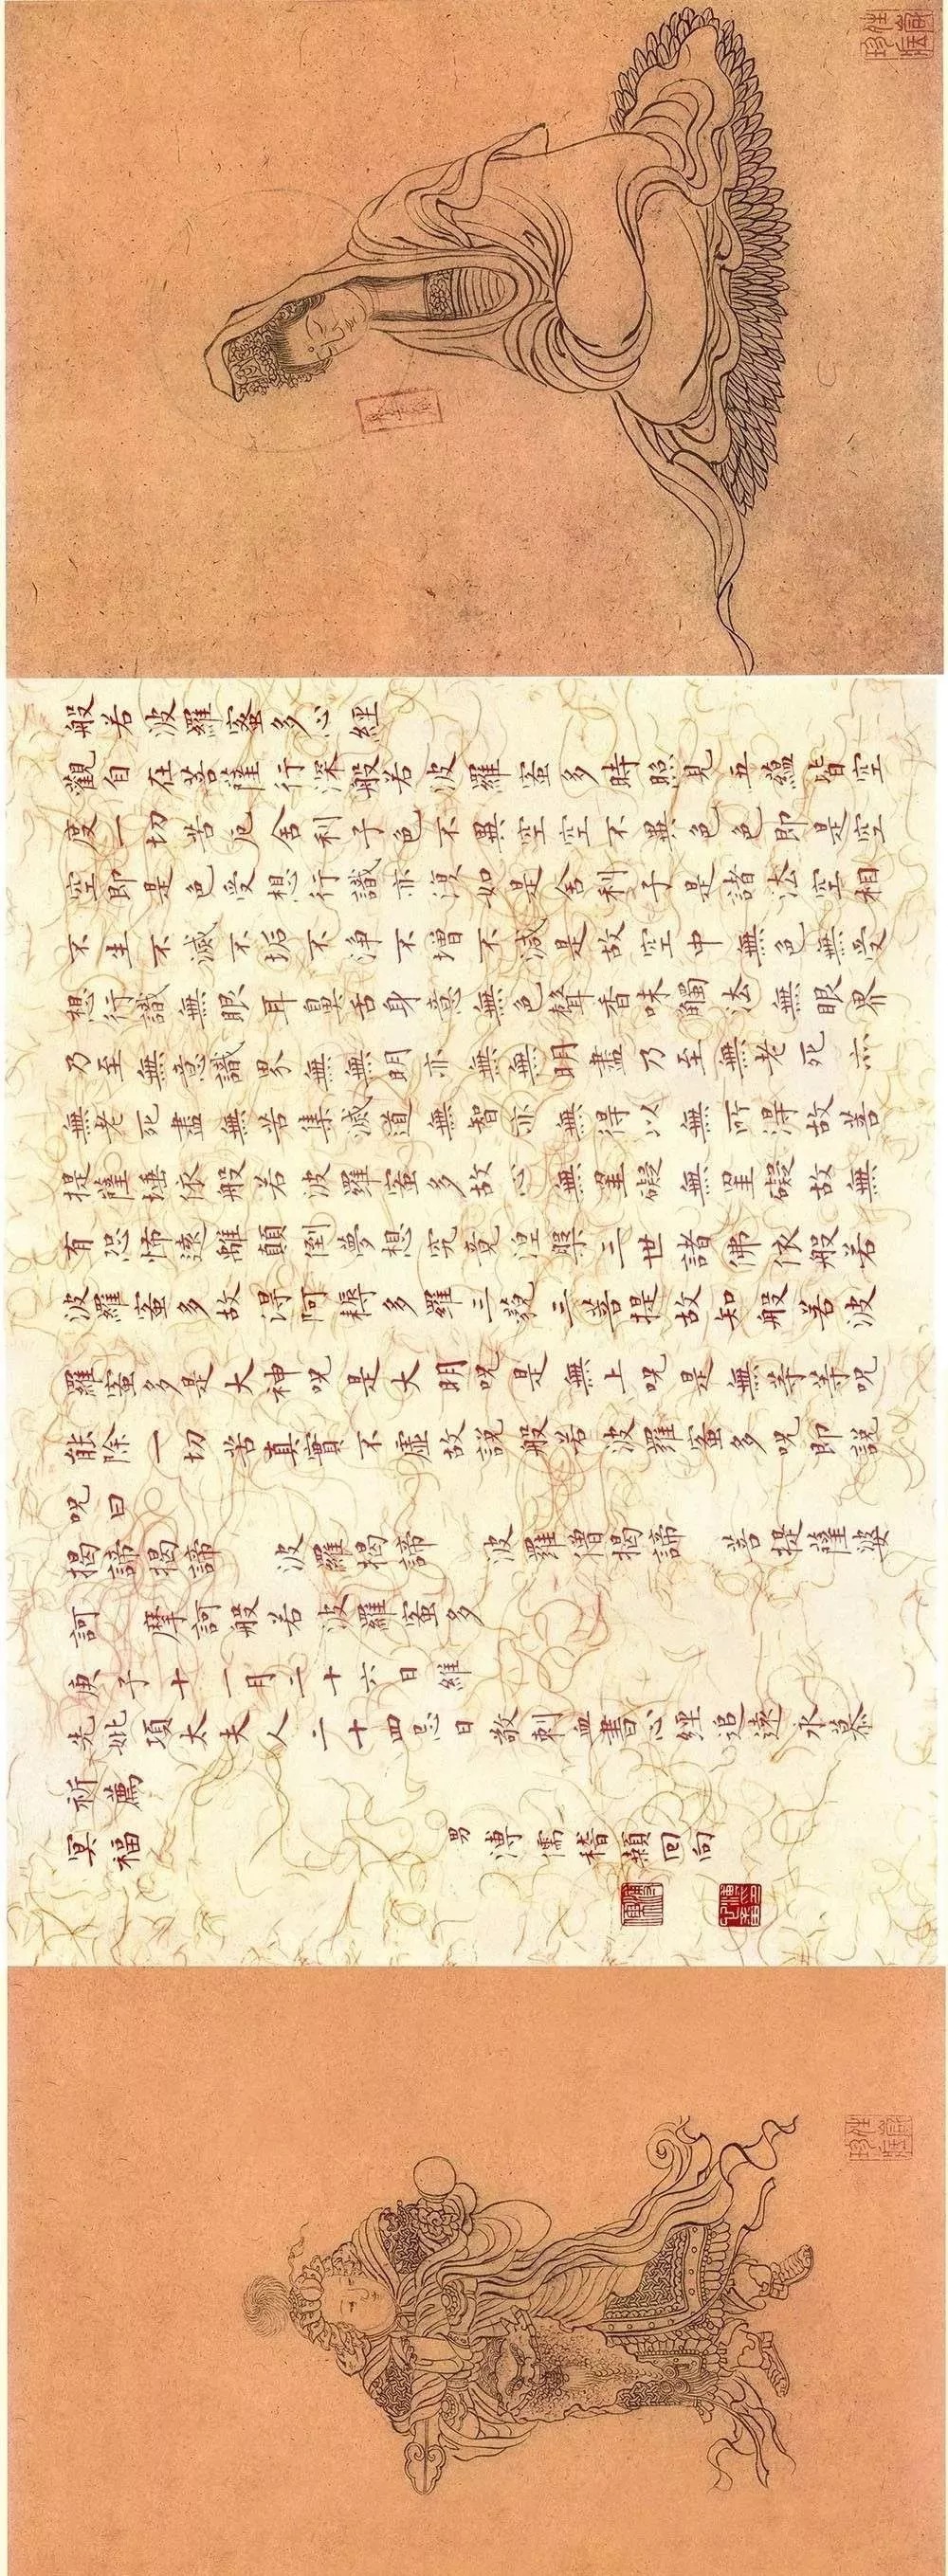 般若波羅蜜多心經
觀自在菩薩行深般若波羅蜜多時照見五蘊皆空
度一切苦厄舍利子色不異空空不異色色即是空
空即是色受想行識亦復如是舍利子是諸法空相
不生不滅不垢不淨不增不減是故空中無色無受
想行識無眼耳鼻舌身意無色聲香味觸法無眼界
乃至無意識界無無明亦無無明盡乃至無老死亦
無老死盡無苦集滅道無智亦無得以無所得故菩
提薩埵依般若波羅蜜多故心無罣礙無罣礙故無
有恐怖遠離顛倒夢想究竟涅槃三世諸佛依般若
波羅蜜多故得阿耨多羅三藐三菩提故知般若波
羅蜜多是大神咒是大明咒是無上咒是無等等咒
能除一切苦真實不虛故說般若波羅蜜多咒即說
咒曰
揭諦揭諦 波羅揭諦 波羅僧揭諦 菩提薩婆
訶 摩訶般若波羅蜜多
庚子十一月二十六日維
先妣項太夫人二十四忌日敬刺血書心經追遠永慕
祈薦
冥福 男溥儒稽顙回向